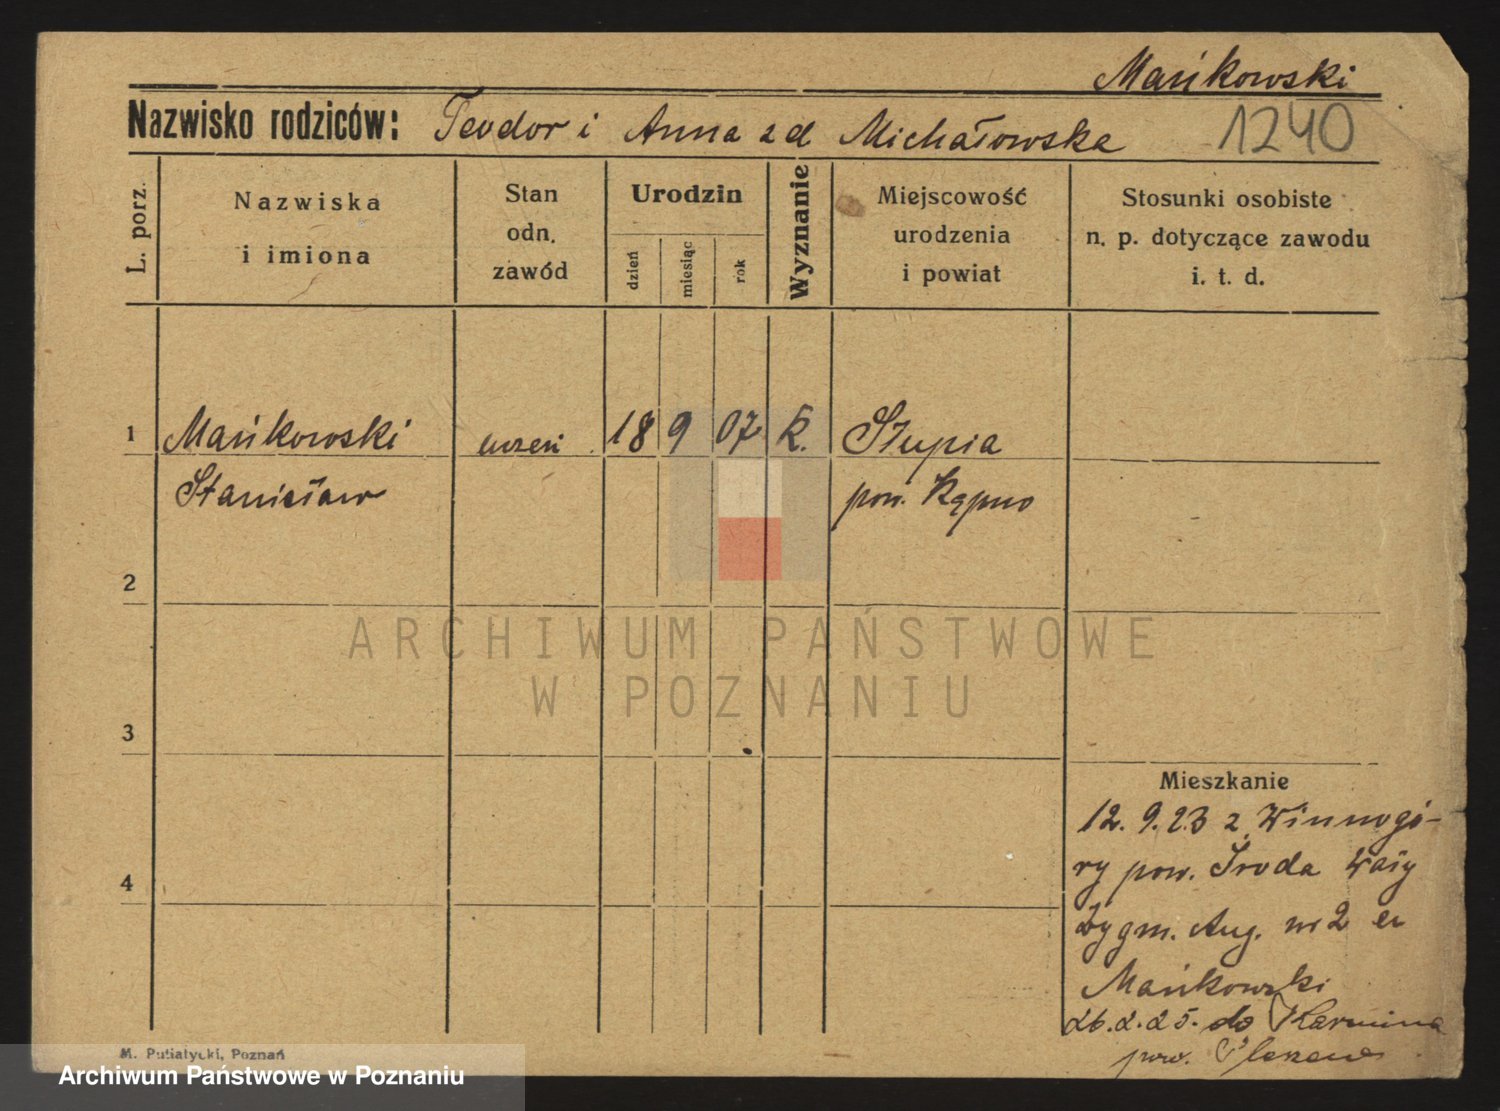 Mańkowski
Nazwisko rodziców: Teodor i Anna zd Michałowska 1240
L. porz.
Nazwiska
i imiona
Stan
odn.
zawód
Urodzin
dzień
miesiąc
rok
Wyznanie
Miejscowość
urodzenia
i powiat
Stosunki osobiste
n. p. dotyczące zawodu
i. t. d.
1 Mańkowski uczeń 18 9 07 k. Słupia
Stanisław pow. Kępno
2
ARCHIWUM PAŃSTWOWE
W POZNANIU
3
Mieszkanie
12. 9. 23 z Winnogó-
ry pow. Środa Wały
4
Zygm. Aug. nr 2
Mańkowski
26. 2. 25. do Karmina
pow. Pleszew
M. Putiatycki, Poznań
Archiwum Państwowe w Poznaniu